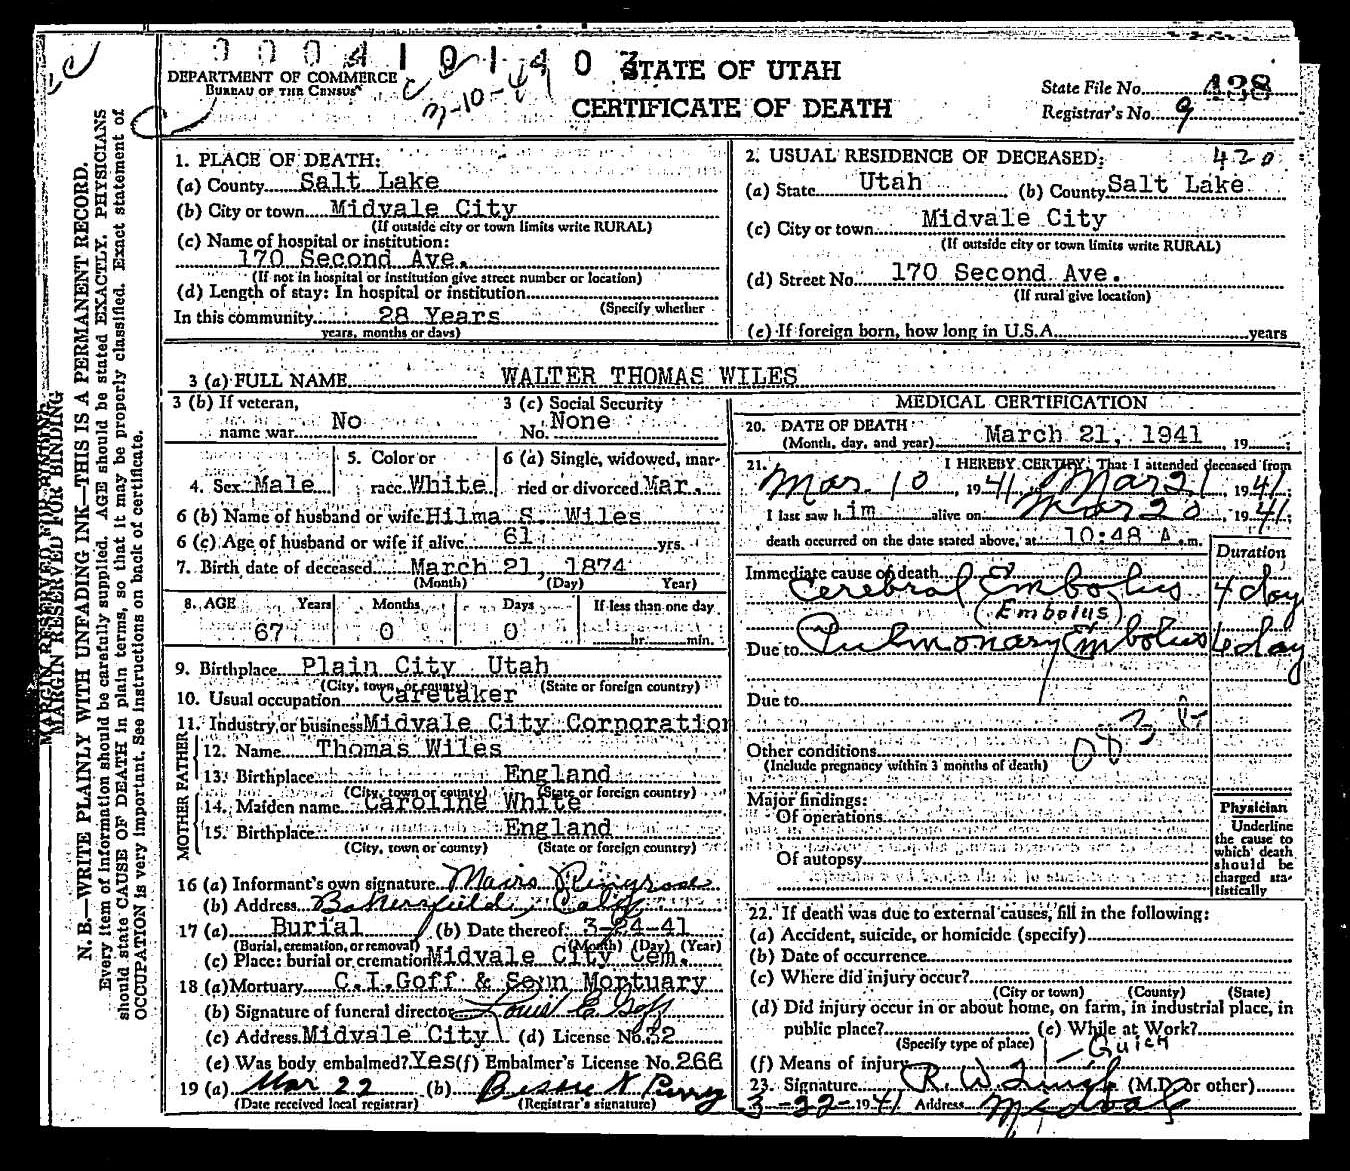 0 0 0 4 1 0 1 4 0 3
DEPARTMENT OF COMMERCE
BUREAU OF THE CENSUS
3-10-41
STATE OF UTAH
CERTIFICATE OF DEATH
State File No. 438
Registrar's No. 9
MARGIN RESERVED FOR BINDING
N. B.—WRITE PLAINLY WITH UNFADING INK—THIS IS A PERMANENT RECORD.
Every item of information should be carefully supplied. AGE should be stated EXACTLY. PHYSICIANS
should state CAUSE OF DEATH in plain terms, so that it may be properly classified. Exact statement of
OCCUPATION is very important. See instructions on back of certificate.
1. PLACE OF DEATH:
(a) County Salt Lake
(b) City or town Midvale City
(If outside city or town limits write RURAL)
(c) Name of hospital or institution:
170 Second Ave.
(If not in hospital or institution give street number or location)
(d) Length of stay: In hospital or institution
(Specify whether
In this community 28 Years
years, months or days)
2. USUAL RESIDENCE OF DECEASED: 420
(a) State Utah (b) County Salt Lake
(c) City or town Midvale City
(If outside city or town limits write RURAL)
(d) Street No. 170 Second Ave.
(If rural give location)
(e) If foreign born, how long in U.S.A. years
3 (a) FULL NAME WALTER THOMAS WILES
3 (b) If veteran, name war No
3 (c) Social Security No. None
4. Sex Male
5. Color or race White
6 (a) Single, widowed, married or divorced Mar.
6 (b) Name of husband or wife Hilma S. Wiles
6 (c) Age of husband or wife if alive 61 yrs.
7. Birth date of deceased March 21, 1874
(Month) (Day) Year)
8. AGE Years Months Days If less than one day
67 0 0 hr. min.
9. Birthplace Plain City Utah
(City, town, or county) (State or foreign country)
10. Usual occupation Caretaker
11. Industry or business Midvale City Corporation
FATHER
12. Name Thomas Wiles
13. Birthplace England
(City, town or county) (State or foreign country)
MOTHER
14. Maiden name Caroline White
15. Birthplace England
(City, town or county) (State or foreign country)
16 (a) Informant's own signature Ringrose
(b) Address Bakersfield, Calif
17 (a) Burial (b) Date thereof 3-24-41
(Burial, cremation, or removal) (Month) (Day) (Year)
(c) Place: burial or cremation Midvale City Cem.
18 (a) Mortuary C.I.Goff & Sonn Mortuary
(b) Signature of funeral director Louis E Goff
(c) Address Midvale City (d) License No. 32
(e) Was body embalmed? Yes (f) Embalmer's License No. 266
19 (a) Mar 22 (b) Bessie N Perry
(Date received local registrar) (Registrar's signature)
MEDICAL CERTIFICATION
20. DATE OF DEATH
(Month, day, and year) March 21, 1941, 19 ;
21. I HEREBY CERTIFY, That I attended deceased from
Mar. 10, 1941, Mar 21, 1941;
I last saw h im alive on Mar 20, 1941;
death occurred on the date stated above, at 10:48 A.m.
Duration
Immediate cause of death Cerebral Embolus 4 day
(Embolus)
Due to Pulmonary Embolus 6 day
Due to
Other conditions
(Include pregnancy within 3 months of death)
Major findings:
Of operations
Of autopsy
Physician
Underline
the cause to
which death
should be
charged sta-
tistically
22. If death was due to external causes, fill in the following:
(a) Accident, suicide, or homicide (specify)
(b) Date of occurrence
(c) Where did injury occur?
(City or town) (County) (State)
(d) Did injury occur in or about home, on farm, in industrial place, in
public place? (e) While at Work?
(Specify type of place)
(f) Means of injury
23. Signature R. W. (M.D. or other)
3-22-1941 Address Midvale